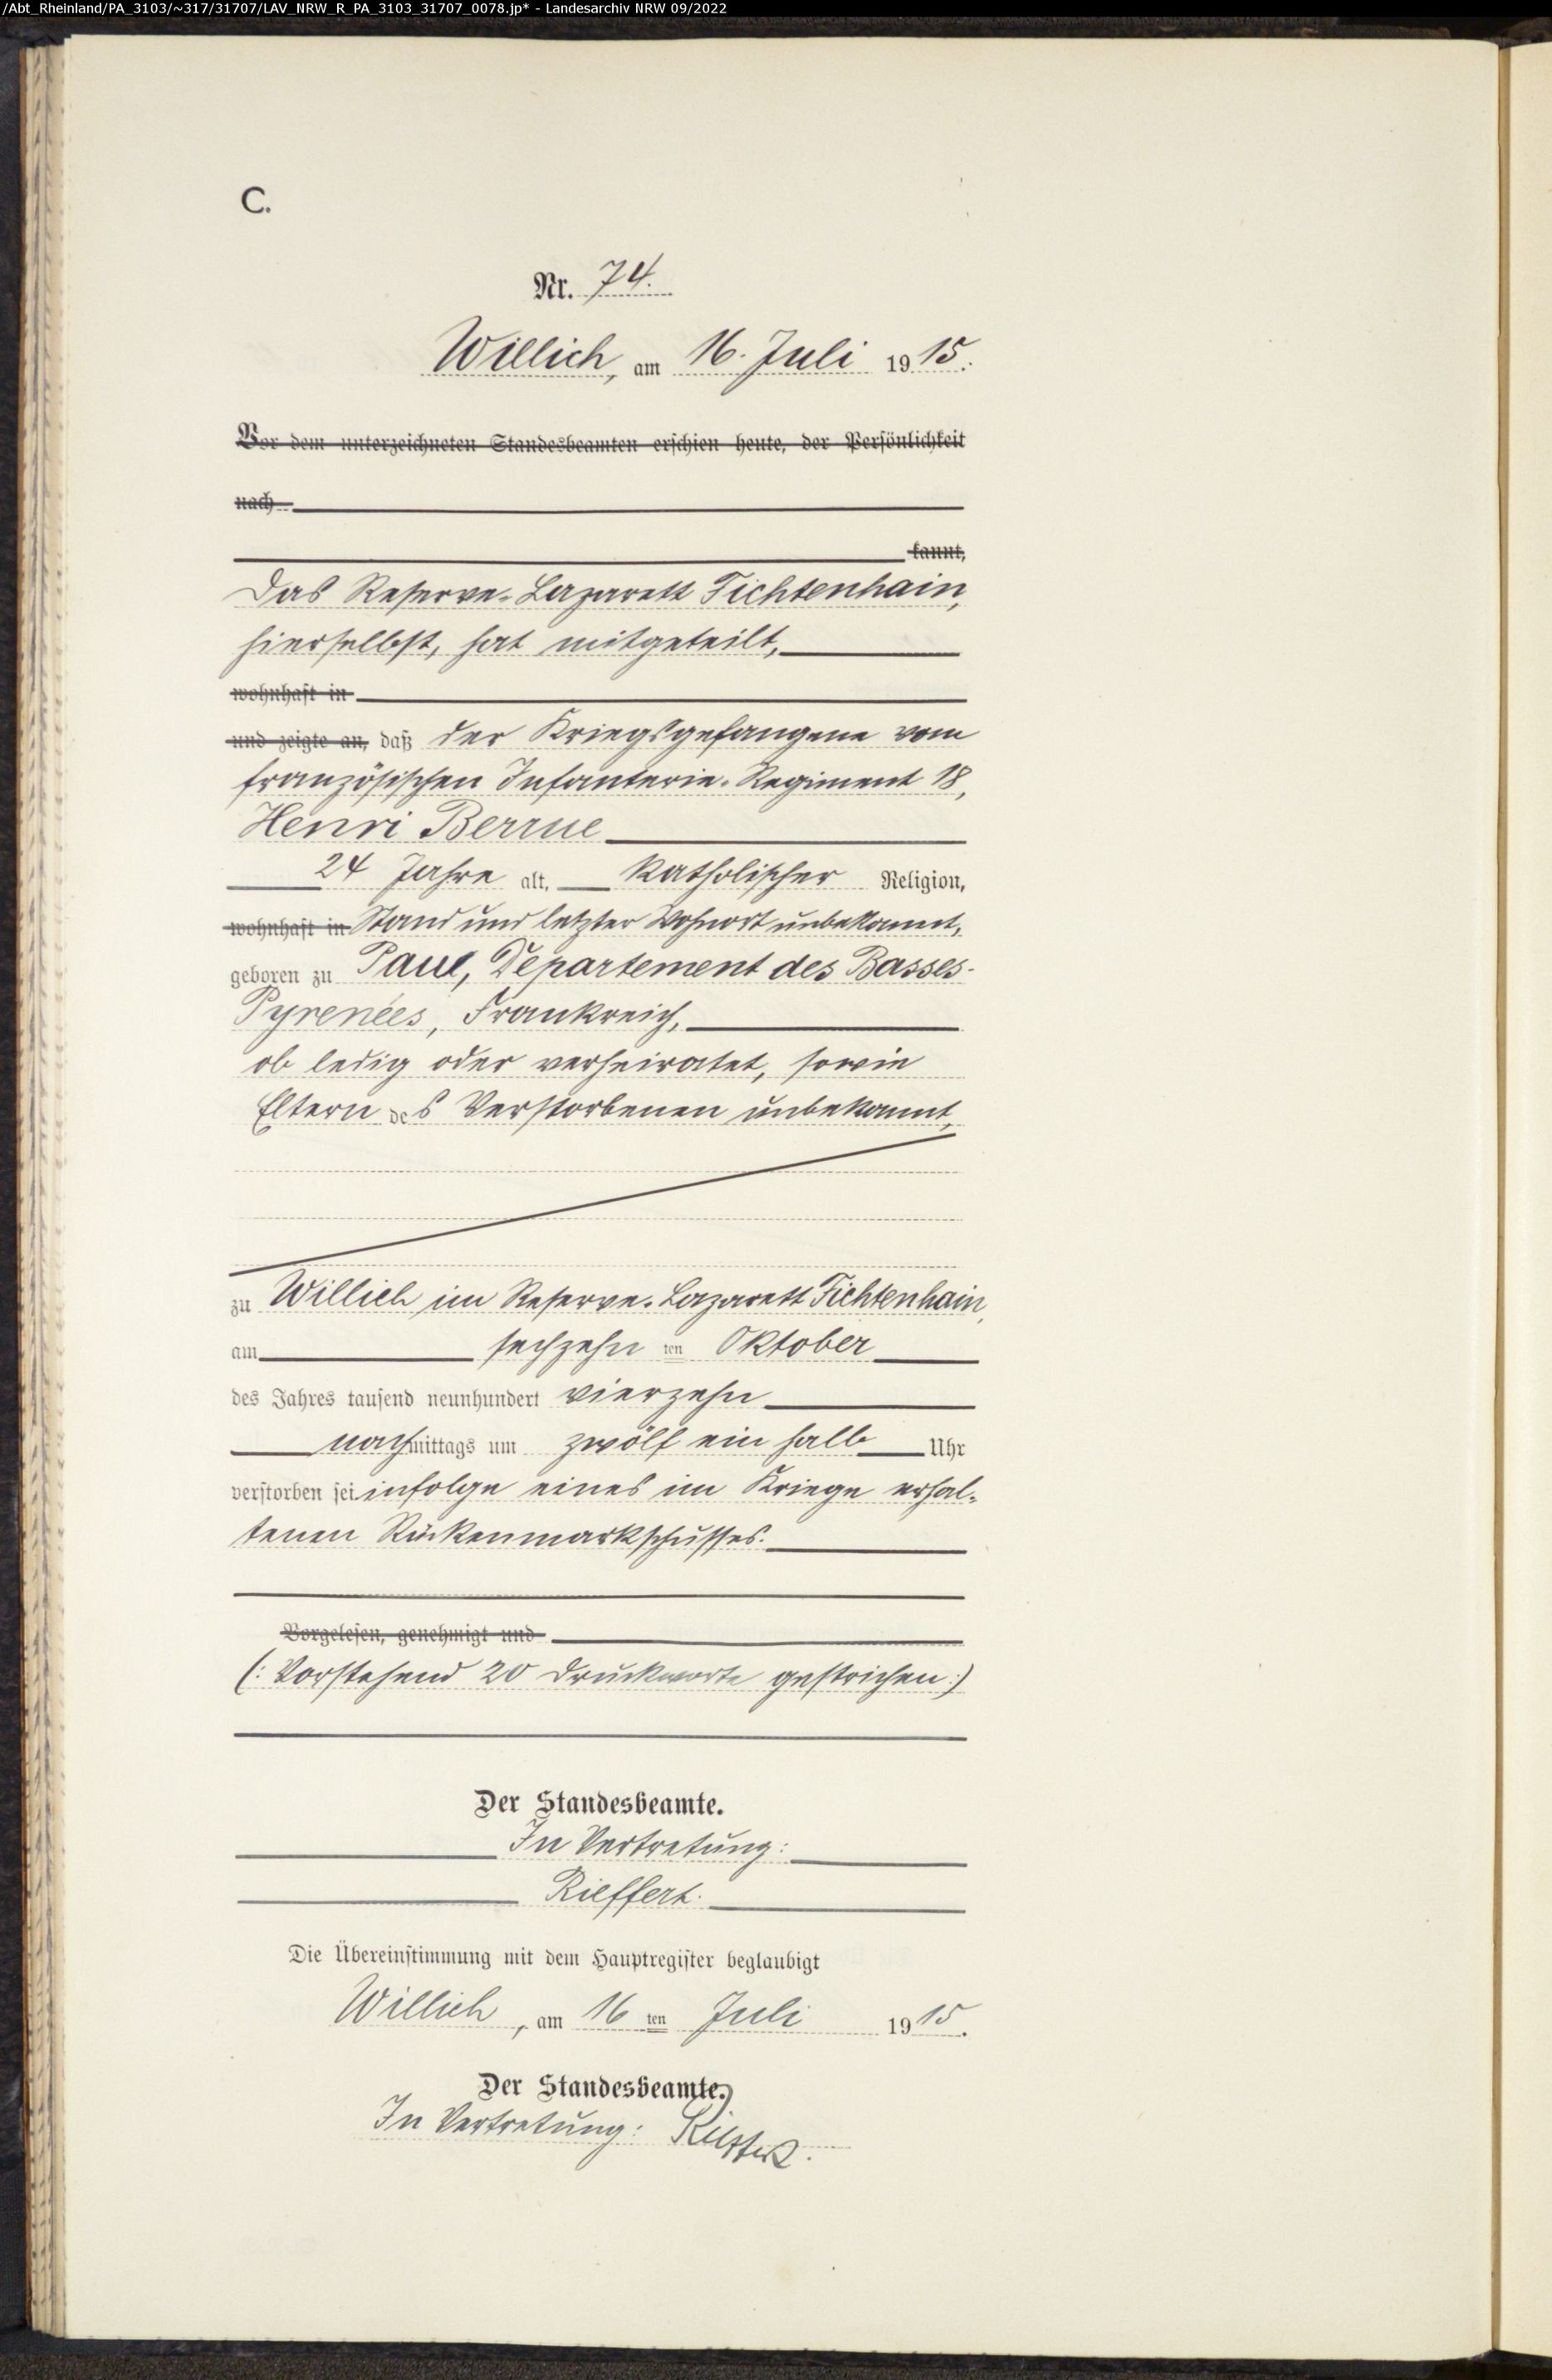 /Abt_Rheinland/PA_3103/~317/31707/LAV_NRW_R_PA_3103_31707_0078.jp* - Landesarchiv NRW 09/2022
C.
Nr. 74.
Willich, am 16. Juli 1915.
Vor dem unterzeichneten Standesbeamten erschien heute, der Persönlichkeit
nach
kannt,
Das Reserve-Lazarett Fichtenhain,
hierselbst, hat mitgeteilt,
wohnhaft in
und zeigte an, daß der Kriegsgefangene vom
französischen Infanterie-Regiment 18,
Henri Berrue
24 Jahre alt, katholischer Religion,
wohnhaft in Stand und letzter Wohnort unbekannt,
geboren zu Paul, Departement des Basses-
Pyrenées, Frankreich,
ob ledig oder verheiratet, sowie
Eltern des Verstorbenen unbekannt,
zu Willich im Reserve-Lazarett Fichtenhain,
am sechzehnten Oktober
des Jahres tausend neunhundert vierzehn
nachmittags um zwölf ein halb Uhr
verstorben sei infolge eines im Kriege erhal-
tenen Rückenmarkschusses.
Vorgelesen, genehmigt und
(: Vorstehend 20 Druckworte gestrichen :)
Der Standesbeamte.
In Vertretung:
Rieffert.
Die Übereinstimmung mit dem Hauptregister beglaubigt
Willich, am 16ten Juli 1915.
Der Standesbeamte.
In Vertretung: Rieffert.